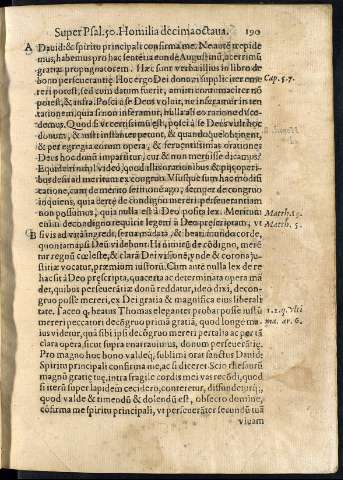 Super Psal. 50. Homilia decimaoctaua. 190
A Dauid: & spiritu principali confirma me. Ne autē trepide
mus, habemus pro hac sentētia eundē Augustinū, acerrimū
gratiæ propugnatorem. Hæc sunt verba illius in libro de
bono perseuerātiæ. Hoc ergo Dei donum suppliciter eme
Cap. 5. 7.
reri potest, sed cum datum fuerit, amitti contumaciter nō
potest, & infra. Poscis se Deus voluit, ne inferamur in ten
tationem, quia si non inferamur, nulla ratione
demus. Quod si verissimū est, posse à Deo videlicet hoc
donum, & iusti instanter petunt, & quandoque
per egregia eorum opera, & feruentissimas orationes
Deus hoc donū impartitur, cur & non meruisse dicamus?
Equidem nihil video, quod illis orationibus & pijs operi-
bus desit ad meritum ex congruo. Huiusque sum hac
catione, cum de merito sermonē ago, semper de congruo
inquiens, quia certe de condigno mereri perseuerantiam
non possumus, quia nulla est à Deo posita lex. Meritum
Matth. 19.
enim de condigno requirit legem à Deo præscriptam, vt
Matth. 5.
B Si vis ad vitā ingredi, serua mādata, & beati mundo corde,
quoniam ipsi Deū videbunt. Hi nimirū de cōdigno, merē
tur regnū cœleste, & clara Dei visione, vnde & corona ju-
stitiæ vocatur, præmium iustorū. Cum autē nulla lex de re
hac sit à Deo præscripta, qua certa ac determinata opera mā
det, quibus perseuerātiæ donū reddatur, ideo dixi, de con-
gruo posse mereri, ex Dei gratia & magnifica eius liberali
tate. Taceo q̃ beatus Thomas eleganter probat posse iustū
1. 2. q. Vlti
mereri peccatori de cōgruo primā gratiā, quod longe ma-
ma. ar. 6.
ius videtur, quā sibi ipsi de cōgruo mereri per talia ac per tā
clara opera, sicut supra enarrauimus, donum perseuerātiæ.
Pro magno hoc bono valdeq̃; sublimi orat sanctus Dauid:
Spiritu principali confirma me, ac si diceret. Scio thesaurū
magnū gratiæ tuę, intra fragile cordis mei vas recōdi, quod
si iterū super lapidem cecidero, conteretur, diffundeturq̃;,
quod valde & timendū & dolendū est, obsecro domine,
cōfirma me spiritu principali, vt perseuerāter secundū tuā
viuam